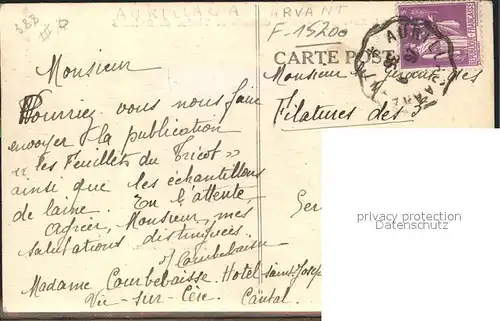 388
AURILLAC A ARVANT
F-15200
CARTE POST
AURILLAC
POSTES
Monsieur
Monsieur le gérant des
Filatures des
Pourriez vous nous faire
envoyer la publication
" les Feuillets du Tricot »
ainsi que les échantillons
de laine. En l'attente
Agréer, Monsieur, mes
salutations distinguées
M Courbebaisse
Ger
Madame Courbebaisse. Hotel Saint Joseph
Vic-sur-Cère. Cantal.
privacy protection
Datenschutz